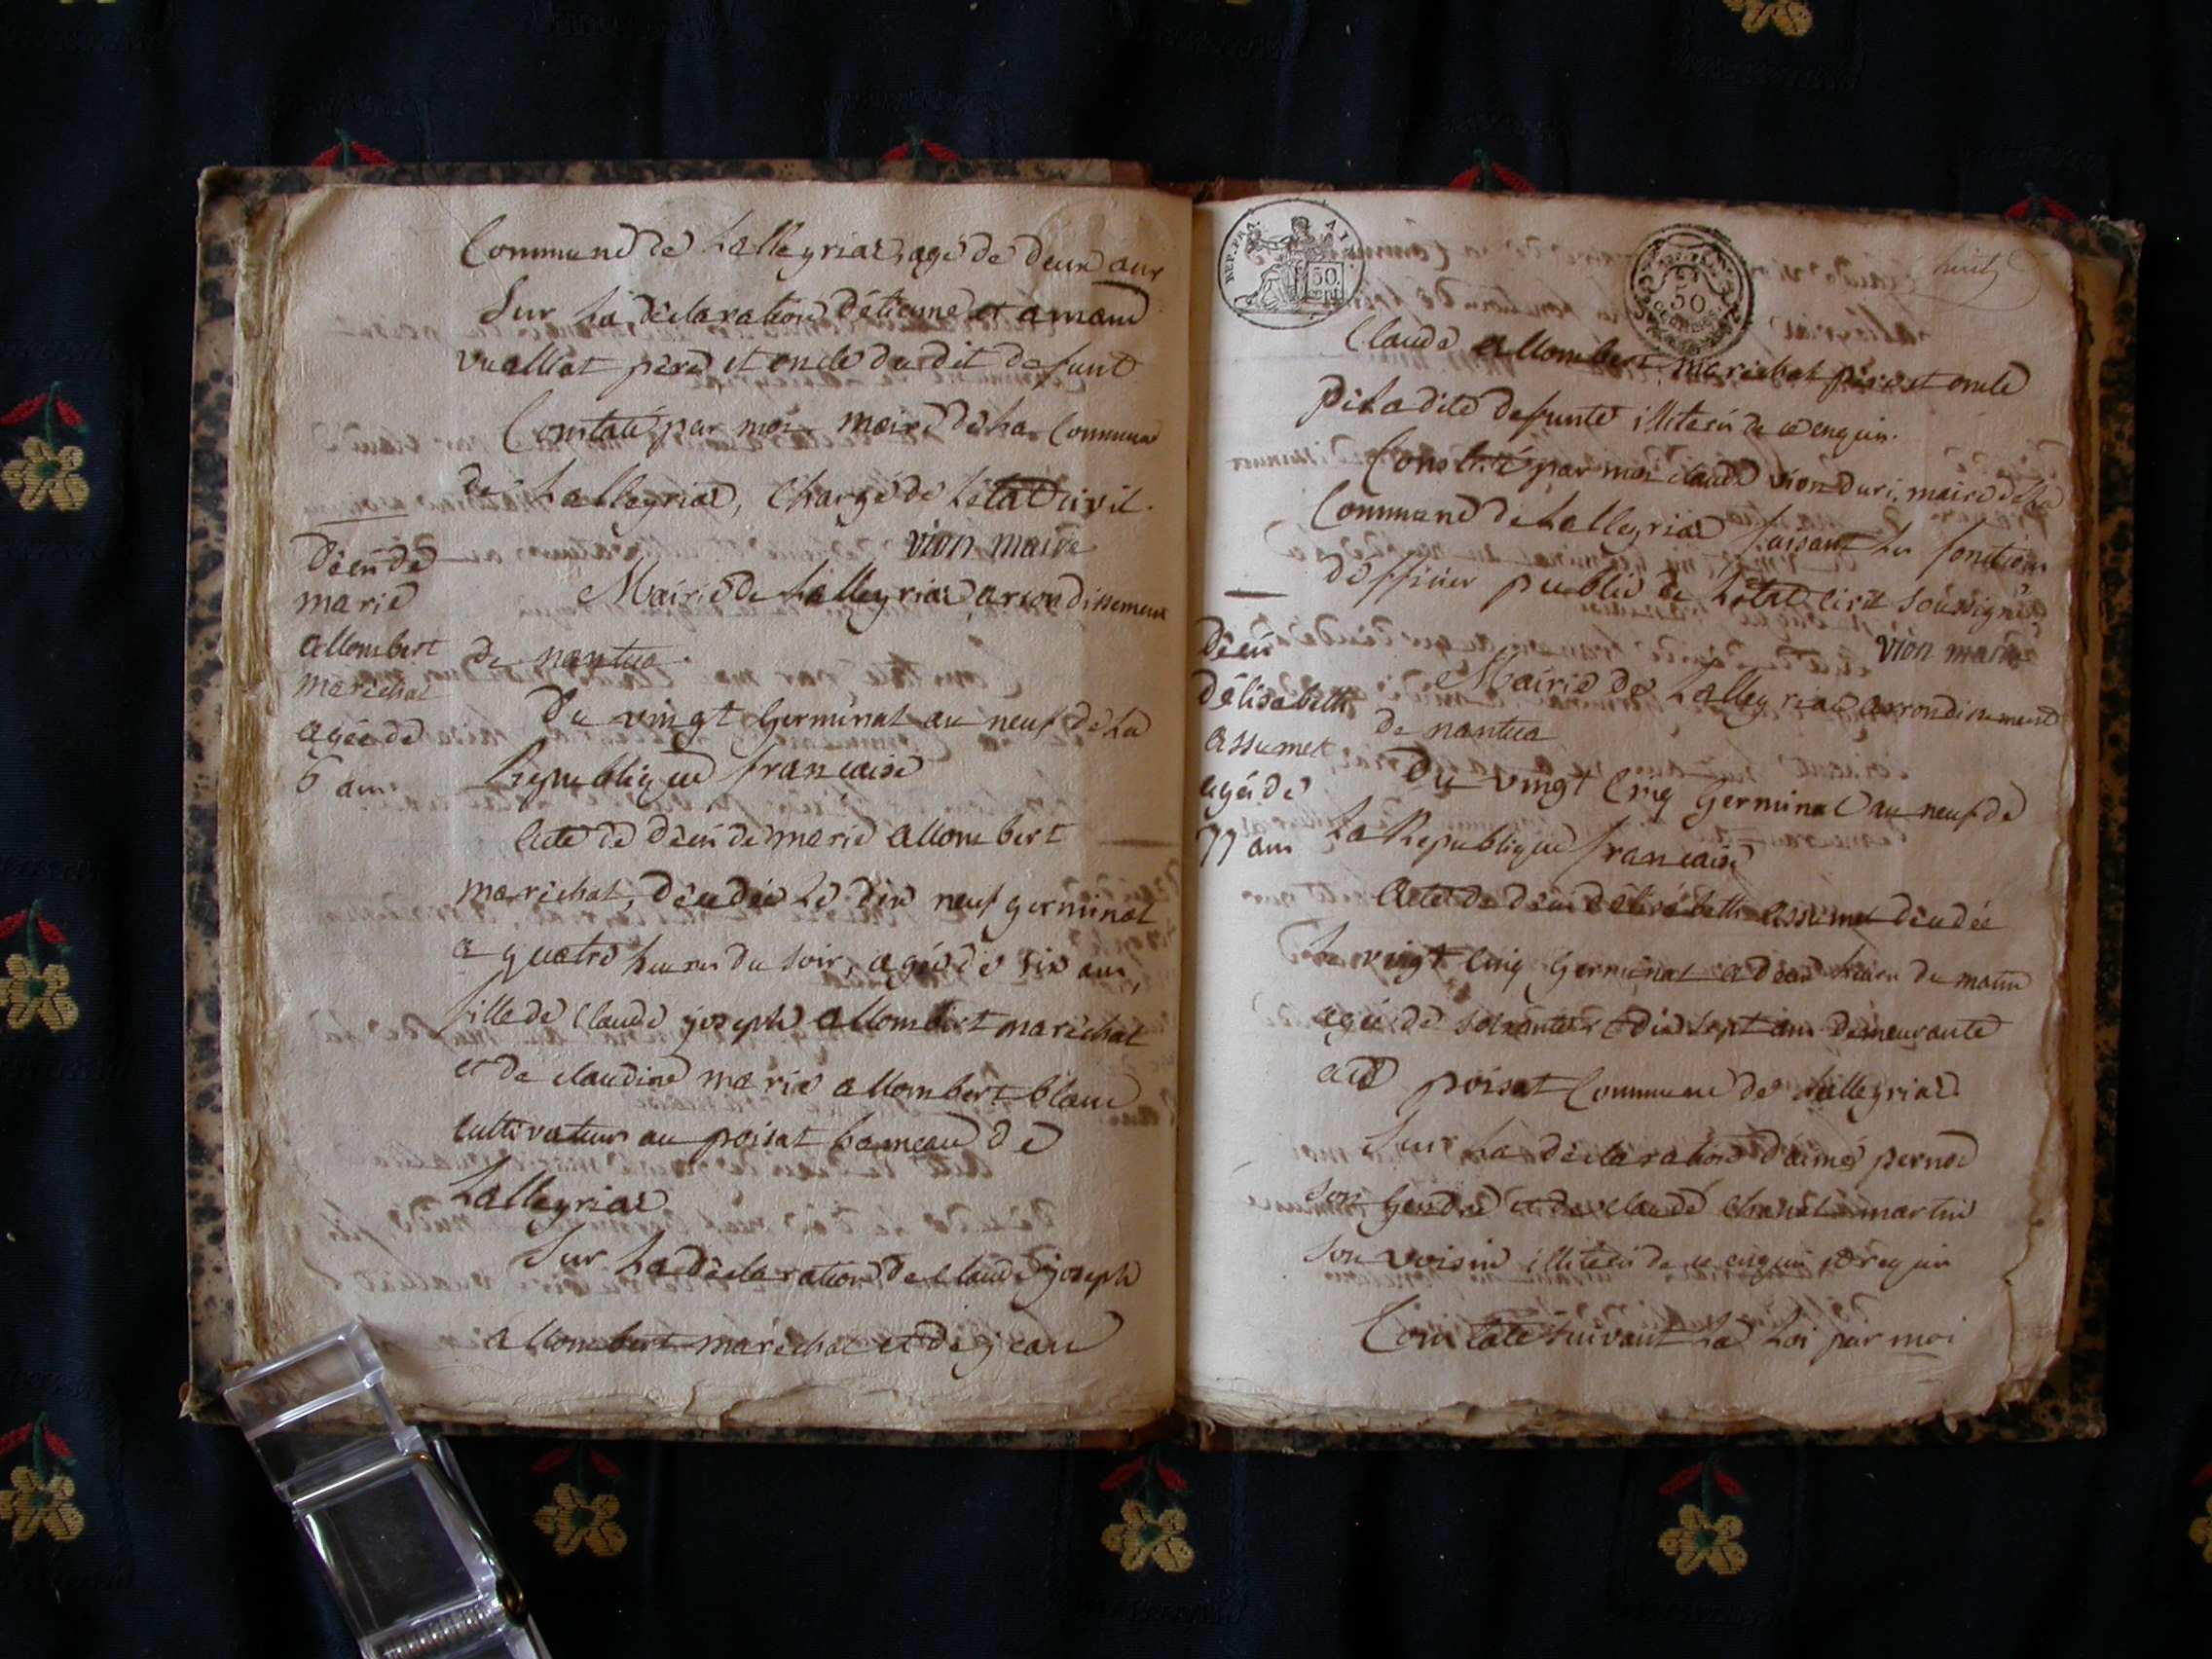 Commune de Lalleyriac, agé de deux ans
Sur La déclaration d'étienne et amand
vualliat pere et oncle du dit defunt
Constaté par moi maire de La Commune
de Lalleyriac, Chargé de Létat civil.
vion maire
décés de
marie
allombert
maréchal
agée de
6 ans
Mairie de Lalleyriac arrondissement
de nantua.
Du vingt Germinal an neuf de La
Republique francaise
Acte de décés de marie allombert
maréchal, décédée Le dix neuf germinal
a quatre heures du soir, agée de six ans,
fille de Claude joseph allombert maréchal
et de claudine marie allombert blanc
cultivateurs au poisat hameau de
Lalleyriac
Sur La déclaration de Claude joseph
allombert maréchal et de jean
REP. FRA.
50
50
huit
Claude allombert maréchal père et oncle
de La dite defunte illiterés de ce enquis.
Constaté par moi claude vion duri, maire de La
Commune de Lalleyriac faisant Les fonctions
d'officier public de Létat civil soussigné.
vion maire
décés
d'élisabeth
assumet
agée de
77 ans
Mairie de Lalleyriac arrondissement
de nantua
Du vingt Cinq Germinal an neuf de
La Republique francaise
Acte de décés d'élisabeth assumet décédée
Le vingt cinq Germinal a deux heures du matin
agée de soixante et dix sept ans demeurante
au poisat Commune de Lalleyriac
Sur La déclaration d'aimé pernod
son gendre et de claude martin
son voisin illiterés de ce enquis et requis
Constaté suivant La Loi par moi